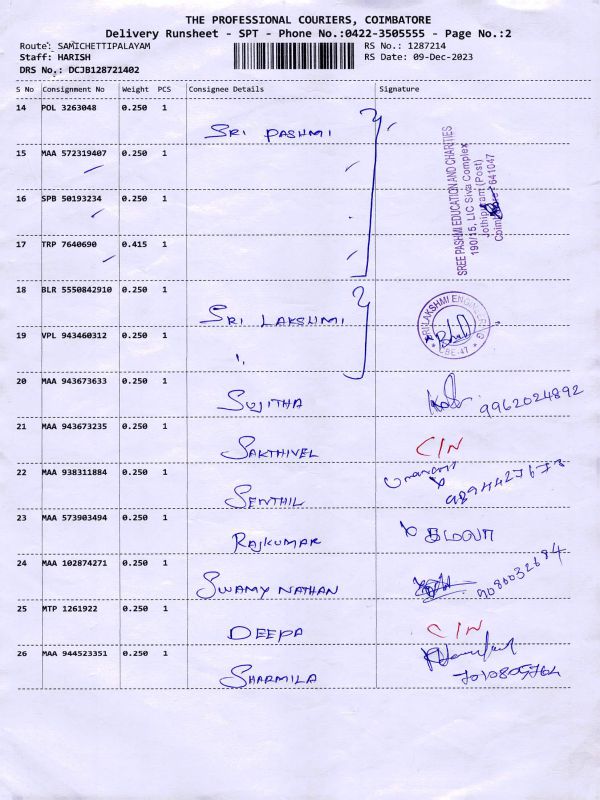 THE PROFESSIONAL COURIERS, COIMBATORE
Delivery Runsheet - SPT - Phone No.:0422-3505555 - Page No.:2
Route: SAMICHETTIPALAYAM RS No.: 1287214
Staff: HARISH RS Date: 09-Dec-2023
DRS No.: DCJB128721402
S No Consignment No Weight PCS Consignee Details Signature
14 POL 3263048 0.250 1
SRI PASHMI
15 MAA 572319407 0.250 1
16 SPB 50193234 0.250 1
17 TRP 7640690 0.415 1
SREE PASHMI EDUCATION AND CHARITIES
190/15, LIC Siva Complex
(Post)
641047
18 BLR 5550842910 0.250 1
SRI LAKSHMI
SRI LAKSHMI ENGINEERING
CBE-47
19 VPL 943460312 0.250 1
20 MAA 943673633 0.250 1
SUJITHA 9962024892
21 MAA 943673235 0.250 1
SAKTHIVEL C/N
22 MAA 938311884 0.250 1
SENTHIL 9894427673
23 MAA 573903494 0.250 1
RAJKUMAR
24 MAA 102874271 0.250 1
SWAMY NATHAN 9080032684
25 MTP 1261922 0.250 1
DEEPA C/N
26 MAA 944523351 0.250 1
SHARMILA